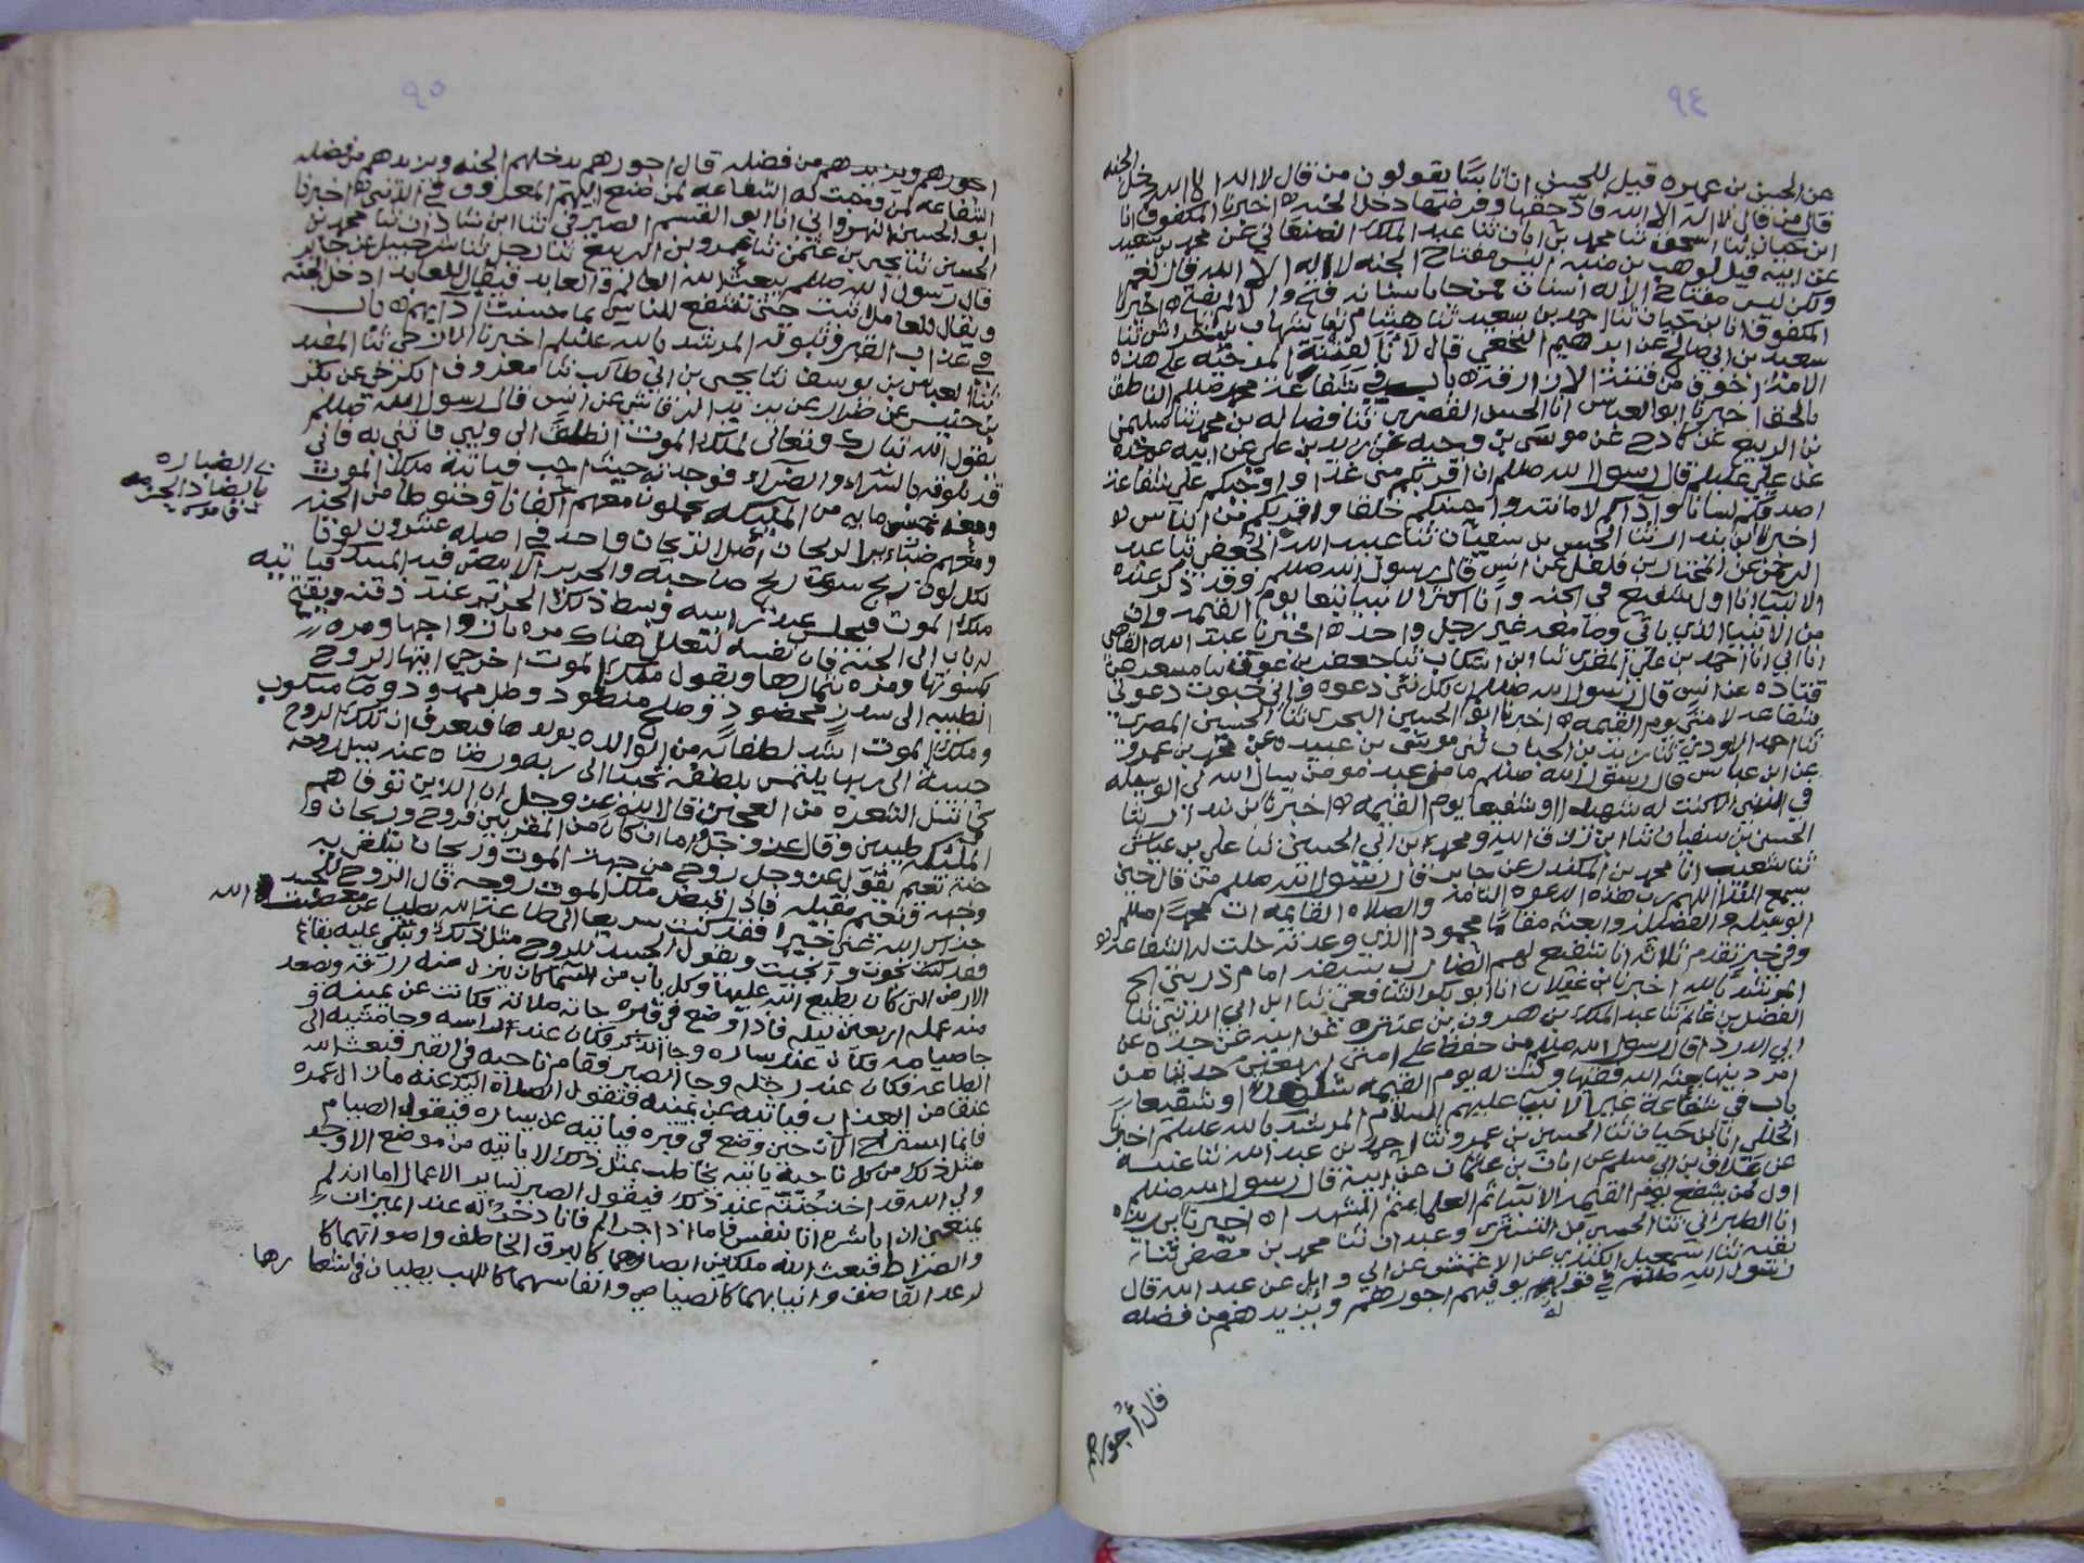 ٩٤
عن الحسن بن عميره قيل للحسن ان اناسا يقولون من قال لا اله الا الله دخل الجنه
قال من قال لا اله الا الله فادّ حقها وفرضها دخل الجنه اخبرنا المكفوف انا
ابن حيان ثنا اسحق ثنا محمد بن ابان ثنا عبد الملك الصنعاني عن محمد بن سعيد
عن ابيه قيل لوهب بن منبه اليس مفتاح الجنه لا اله الا الله قال نعم
ولكن ليس مفتاح الا له اسنان فمن جا باسنانه فتح والا لم يفتح اخبرنا
المكفوف انا بن حيان ثنا احمد بن سعيد ثنا هشام ثنا شهاب بن خراش ثنا
سعيد بن ابي صالح عن ابرهيم النخعي قال لأنا لفتنة المرجئه على هذه
الامه اخوف من فتنة الازارقه باب في شفاعة محمد صللم الناطق
بالحق اخبرنا ابو العباس انا الحسن ثنا فضاله بن محمد ثنا سليمن
بن الربيع عن كادح عن موسى بن وجيه عن زيد بن علي عن ابيه عن جده
عن علي عليلم قال رسول الله صللم ان اقربكم مني غدا واوجبكم علي شفاعة
اصدقكم لسانا وآداكم لامانته واحسنكم خلقا واقربكم من الناس
اخبرنا ابن بندار ثنا الحسن بن سفيان ثنا عبيد الله الجعفي ثنا عبد
الرحمن عن المختار بن فلفل عن انس قال رسول الله صللم وقد ذكر عنده
الانبيا انا اول شفيع في الجنه وانا اكثر الانبيا تبعا يوم القيمه وان
من الانبيا الذي ياتي وما معه غير رجل واحد اخبرنا عبد الله القاضي
انا ابي انا احمد بن علي المقري ثنا ابن اشكاب ثنا جعفر بن عون ثنا مسعر عن
قتاده عن انس قال رسول الله صللم ان لكل نبي دعوه واني خبوت دعوتي
شفاعه لامتي يوم القيمه اخبرنا ابو الحسين البحري ثنا الحسين المصري
ثنا احمد الاودي ثنا زيد بن الحباب ثني موسى بن عبيده عن محمد بن عمرو
عن ابن عباس قال رسول الله صللم ما من عبد مومن يسال الله لي الوسيله
في الدنيا الا كنت له شهيدا او شفيعا يوم القيمه اخبرنا ابن بندار ثنا
الحسن بن سفيان ثنا ابن زنجويه ومحمد ابن ابي الحسين ثنا علي بن عياش
ثنا شعيب انا محمد بن المنكدر عن جابر قال رسول الله صللم من قال حين
يسمع الندا اللهم رب هذه الدعوه التامه والصلاه القايمه ات محمدا صللم
الوسيله والفضيله وابعثه مقاما محمودا الذي وعدته حلت له الشفاعه
وفي خبر تقدم ثلاثه انا شفيع لهم الضارب بسيفه امام ذريتي الخ
المرشد بالله اخبرنا ابن غيلان انا ابو بكر الشافعي ثنا ابن ابي الدنيا ثنا
الفضل بن غانم ثنا عبد الملك بن هرون بن عنتره عن ابيه عن جده عن
ابي الدردا قال رسول الله صللم من حفظ على امتي اربعين حديثا من
امر دينها بعثه الله فقيها وكنت له يوم القيمه شاهدا او شفيعا
باب في شفاعة غير الانبيا عليهم السلام المرشد بالله عليلم اخبرنا
انا ابن حيان ثنا الحسين بن عمرو ثنا احمد بن عبد الله ثنا عنبسه
عن علاق بن ابي مسلم عن ابان بن عثمان عن ابيه قال رسول الله صللم
اول من يشفع يوم القيمه الانبيا ثم العلما ثم الشهدا اخبرنا بن ريذه
انا الطبراني ثنا الحسين التستري وعبدان ثنا محمد بن مصفى ثنا
بقيه ثنا اسمعيل الكندي عن الاعمش عن ابي وايل عن عبد الله قال
رسول الله صللم في قوله يوفيهم اجورهم ويزيدهم من فضله
قال أجورهم
٩٥
اجورهم ويزيدهم من فضله قال اجورهم يدخلهم الجنه ويزيدهم من فضله
الشفاعه لمن وجبت له الشفاعه لمن صنع اليهم المعروف في الدنيا اخبرنا
ابو الحسين النهرواني انا ابو القسم الصيرفي ثنا ابن شاذان ثنا محمد بن
الحسين ثنا يحيى بن عثمن ثنا عمرو بن الربيع ثنا رجل ثنا شرحبيل عن جابر
قال رسول الله صللم يبعث الله العالم والعابد فيقال للعابد ادخل الجنه
ويقال للعالم اثبت حتى تشفع للناس بما حسنت آدابهم باب
في عذاب القبر وثبوته المرشد بالله عليلم اخبرنا ثنا المفيد
ثنا العباس بن يوسف ثنا يحيى بن ابي طالب ثنا معروف الكرخي عن بكر
بن خنيس عن ضرار عن يزيد الرقاشي عن انس قال رسول الله صللم
يقول الله تبارك وتعالى لملك الموت انطلق الى وليي فاتني به فاني
قد بلوته بالسراء والضراء فوجدته حيث احب فياتيه ملك الموت
ومعه خمس مايه من المليكه يحملون معهم اكفانا وحنوطا من الجنه
ومعهم ضباير الريحان اصل الريحان واحد في اصله عشرون لونا
لكل لون ريح سوى ريح صاحبه والحرير الابيض فيه المسك فياتيه
ملك الموت فيجلس عند راسه ويبسط ذلك الحرير عند ذقنه ويفتح
له باب الى الجنه فان نفسه لتعلل هناك مره بازواجها ومره
بكسوتها ومره بثمارها ويقول ملك الموت اخرجي ايتها الروح
الطيبه الى سدر مخضود وطلح منضود وظل ممدود وما مسكوب
وملك الموت اشد لطفا به من الوالده بولدها فيعرف ان تلك الروح
حبيبة الى ربها يلتمس بلطفه تحببا الى ربه ورضاه عنه يسل روحه
كما تسل الشعره من العجين قال الله عز وجل ان الذين توفاهم
المليكه طيبين وقال عز وجل اما ان كان من المقربين فروح وريحان و
جنة نعيم يقول عز وجل روح من جهد الموت وريحان يتلقى به
وجهه ونعيم مقيله فاذا قبض ملك الموت روحه قال الروح للجسد
جزاك الله عني خيرا فقد كنت سريعا الى طاعة الله بطيا عن معصيت الله
فقد نجوت وانجيت ويقول الجسد للروح مثل ذلك وتبكي عليه بقاع
الارض التي كان يطيع الله عليها وكل باب من السما كان ينزل منه رزقه ويصعد
منه عمله اربعين ليله فاذا وضع في قبره جاته صلاته فكانت عن يمينه و
جا صيامه فكان عند يساره وجا الذكر فكان عند راسه وجا مشيه الى
الطاعه فكان عند رجله وجا الصبر فقام ناحيه في القبر فيبعث الله
عنقا من العذاب فياتيه عن يمينه فتقول الصلاه اليك عنه ما زال عمره
فانما استراح الان حين وضع في قبره فياتيه عن يساره فيقول الصيام
مثل ذلك من كل ناحية ياتيه يخاطب بمثل ذلك لا ياتيه من موضع الا وجد
ولي الله قد اخذ جُنته عند ذلك فيقول الصبر لساير الاعمال اما انه لم
يمنعني ان اباشره انا بنفسي فاما اذ اجزاتم فانا ذخر له عند الميزان
والصراط فيبعث الله ملكين ابصارهما كالبرق الخاطف واصواتهما كا
لرعد القاصف وانيابهما كالصياصي وانفاسهما كاللهب يطيان في اشعارهما
الضباره
بالضاد
قاموس